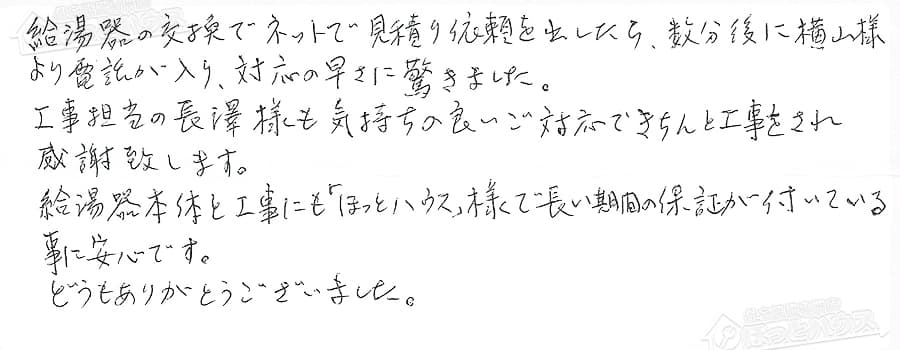 給湯器の交換でネットで見積り依頼を出したら、数分後に横山様
より電話が入り、対応の早さに驚きました。
工事担当の長澤様も気持ちの良いご対応できちんと工事をされ
感謝致します。
給湯器本体と工事にも「ほっとハウス」様で長い期間の保証が付いている
事に安心です。
どうもありがとうございました。
ほっとハウス